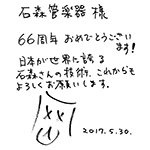 石森管楽器 様
66周年 おめでとうござい
ます!
日本が世界に誇る
石森さんの技術、これからも
よろしくお願いします。
2017.5.30.